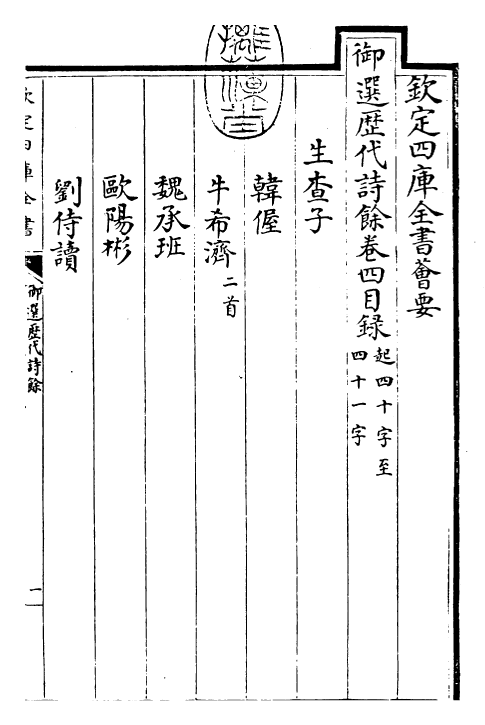 欽定四庫全書薈要
御選歴代詩餘卷四目録起四十字至四十一字
生查子
韓偓
牛希濟二首
魏承班
歐陽彬
劉侍讀
欽定四庫全書
御選歴代詩餘
一